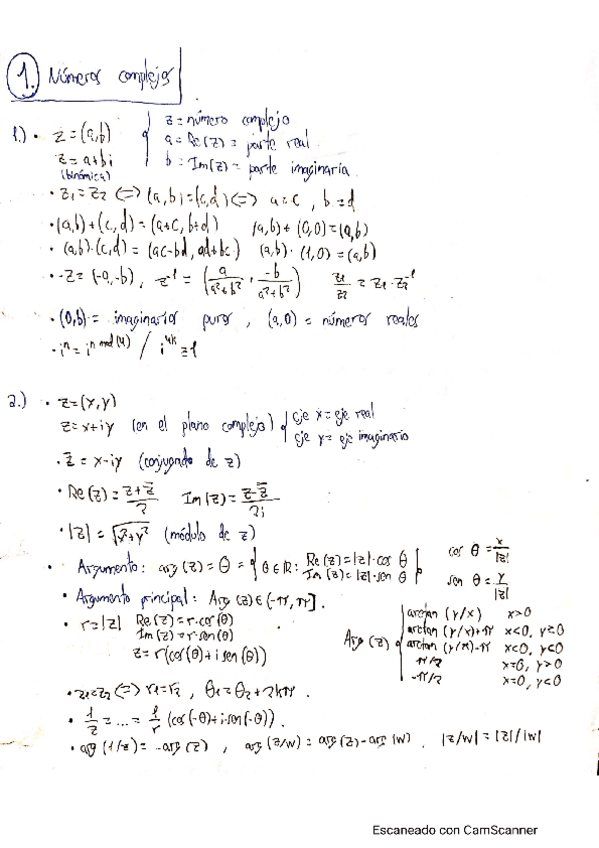 1. Números complejos
1.) • z = (a,b) { z = número complejo
z = a+bi a = Re(z) = parte real
(binómica) b = Im(z) = parte imaginaria
• z₁ = z₂ <=> (a,b) = (c,d) <=> a = c , b = d
• (a,b) + (c,d) = (a+c, b+d) (a,b) + (0,0) = (a,b)
• (a,b)·(c,d) = (ac-bd, ad+bc) (a,b)·(1,0) = (a,b)
• -z = (-a,-b), z⁻¹ = (a/(a²+b²), -b/(a²+b²)) z₁/z₂ = z₁·z₂⁻¹
• (0,b) = imaginarios puros , (a,0) = números reales
• iⁿ = i^(n mod(4)) / i^(4k) = 1
2.) • z = (x,y)
z = x+iy (en el plano complejo) { eje x = eje real
eje y = eje imaginario
• z̄ = x-iy (conjugado de z)
• Re(z) = (z+z̄)/2 Im(z) = (z-z̄)/2i
• |z| = √(x²+y²) (módulo de z)
• Argumento: arg(z) = θ = { θ∈ℝ: Re(z) = |z|·cos θ
Im(z) = |z|·sen θ } cos θ = x/|z|
sen θ = y/|z|
• Argumento principal: Arg(z) ∈ (-π, π].
• r = |z| Re(z) = r·cos(θ)
Im(z) = r·sen(θ)
z = r(cos(θ) + i sen(θ))
Arg(z) { arctan (y/x) x>0
arctan (y/x)+π x<0, y≥0
arctan (y/x)-π x<0, y<0
π/2 x=0, y>0
-π/2 x=0, y<0
• z₁ = z₂ <=> r₁ = r₂ , θ₁ = θ₂ + 2kπ .
• 1/z = ... = 1/r (cos(-θ) + i·sen(-θ)).
• arg(1/z) = -arg(z) , arg(z/w) = arg(z) - arg(w) . |z/w| = |z|/|w|
Escaneado con CamScanner